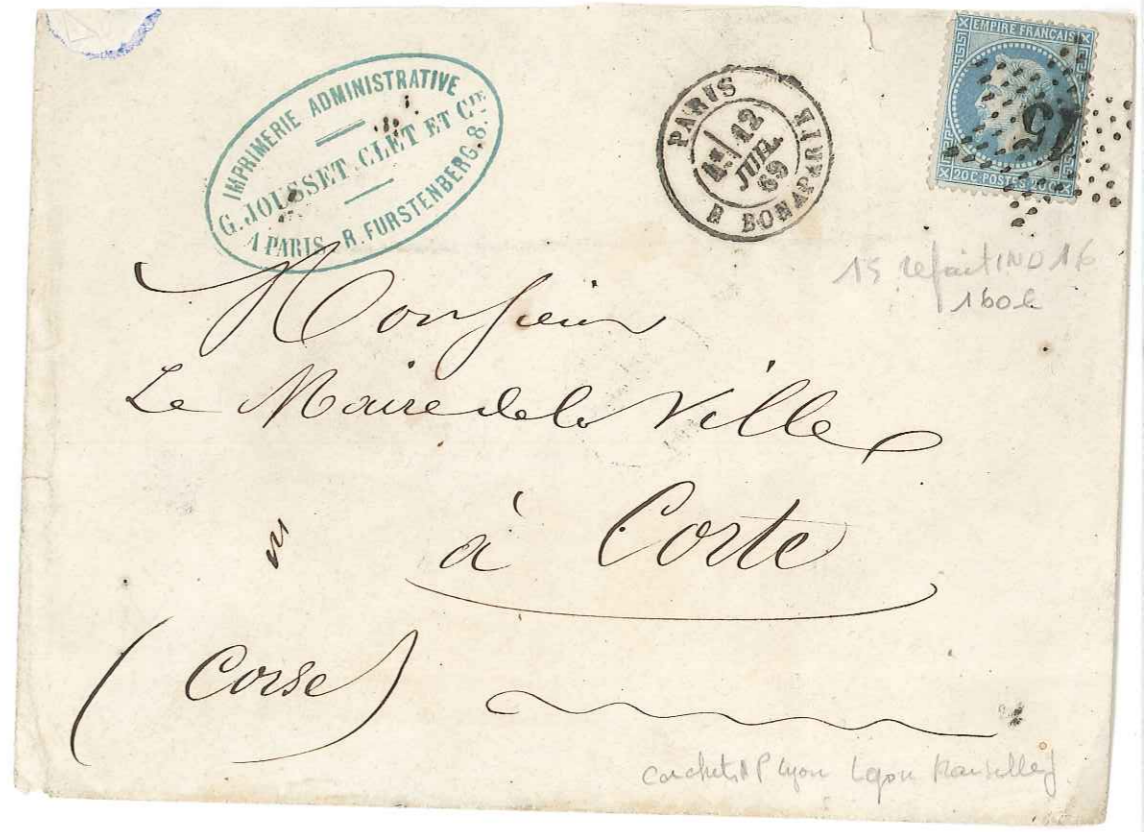 IMPRIMERIE ADMINISTRATIVE
G. JOUSSET, CLET ET CIE
A PARIS R. FURSTENBERG. 8.
PARIS
12
JUIL.
69
R BONAPARTE
EMPIRE FRANÇAIS
15
20C. POSTES 20C.
15 refait IND 16
Monsieur
Le Maire de la Ville
à Corte
(Corse)
cachets P Lyon Lyon Marseille